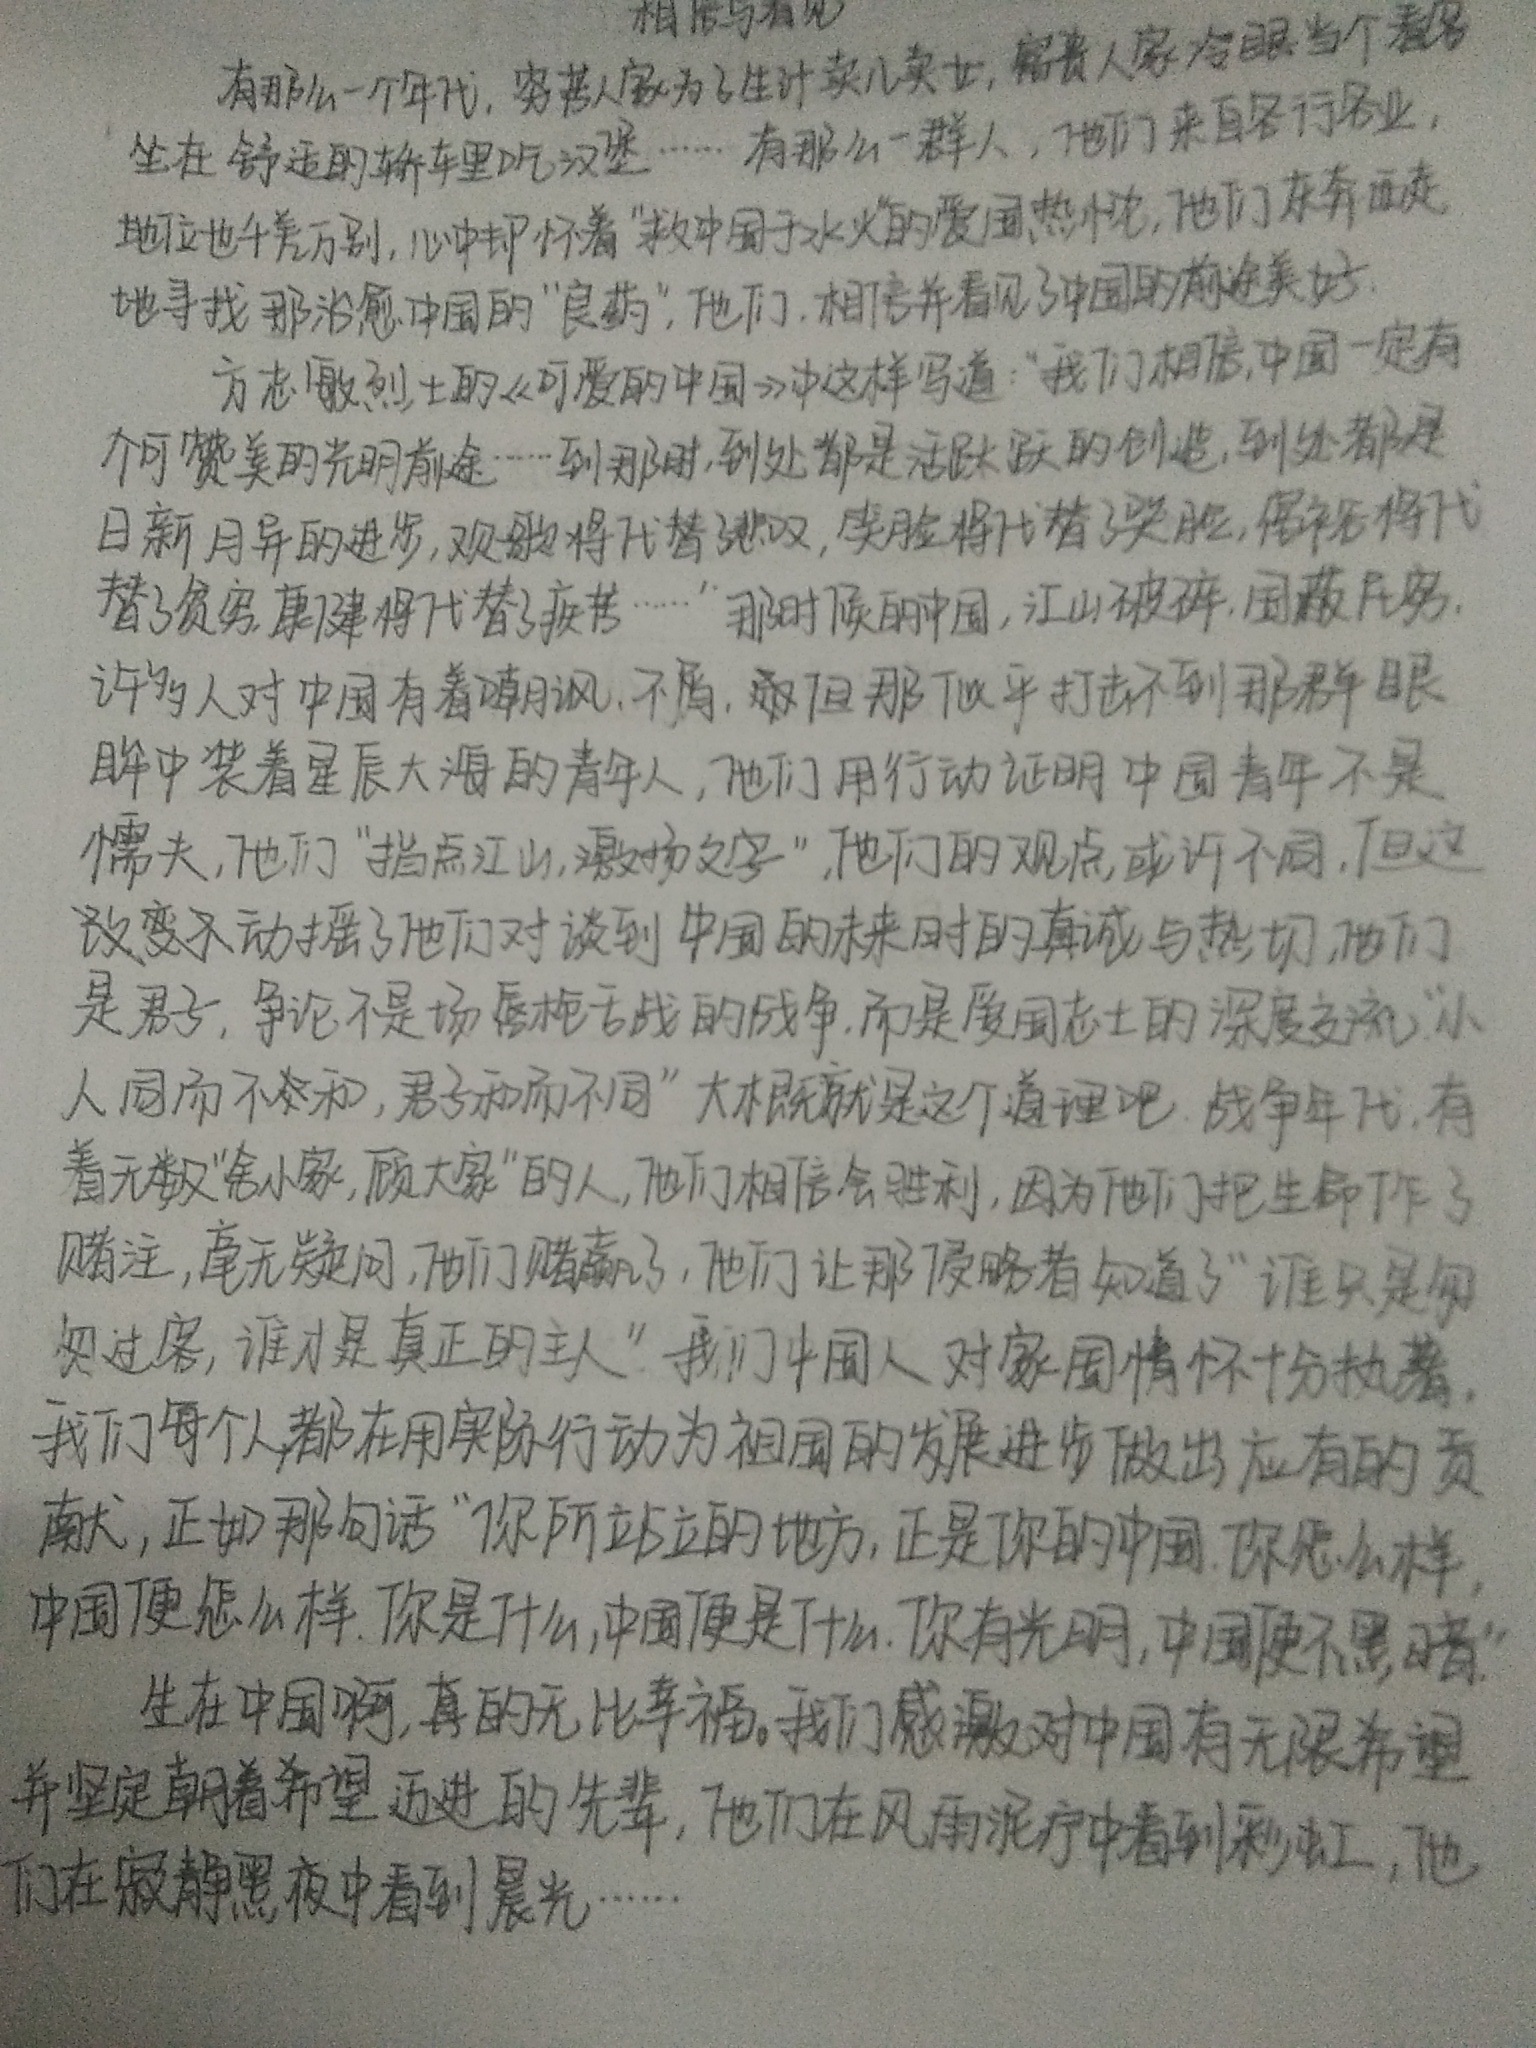 相信与看见
有那么一个年代，穷苦人家为了生计卖儿卖女，富贵人家冷眼当个看客
坐在舒适的轿车里吃汉堡……有那么一群人，他们来自各行各业，
地位也千差万别，心中却怀着“救中国于水火”的爱国热忱，他们东奔西走
地寻找那治愈中国的“良药”，他们，相信并看见了中国的前途美好.
方志敏烈士的《可爱的中国》中这样写道：“我们相信，中国一定有
个可赞美的光明前途……到那时，到处都是活跃跃的创造，到处都是
日新月异的进步，欢歌将代替了悲叹，笑脸将代替了哭脸，富裕将代
替了贫穷，康健将代替了疾苦……”那时候的中国，江山破碎，国敝民穷.
许多人对中国有着嘲讽、不屑，但那似乎打击不到那群眼
眸中装着星辰大海的青年人，他们用行动证明中国青年不是
懦夫，他们“指点江山，激扬文字”，他们的观点或许不同，但这
改变不动摇了他们对谈到中国的未来时的真诚与热切，他们
是君子，争论不是场唇枪舌战的战争，而是爱国志士的深度交流“小
人同而不和，君子和而不同”大概就是这个道理吧.战争年代，有
着无数“舍小家，顾大家”的人，他们相信会胜利，因为他们把生命作了
赌注，毫无疑问，他们赌赢了，他们让那侵略者知道了“谁只是匆
匆过客，谁才是真正的主人”.我们中国人对家国情怀十分执着，
我们每个人都在用实际行动为祖国的发展进步做出应有的贡
献，正如那句话“你所站立的地方，正是你的中国.你怎么样，
中国便怎么样.你是什么，中国便是什么.你有光明，中国便不黑暗.”
生在中国啊，真的无比幸福。我们感激对中国有无限希望
并坚定朝着希望迈进的先辈，他们在风雨泥泞中看到彩虹，他
们在寂静黑夜中看到晨光……